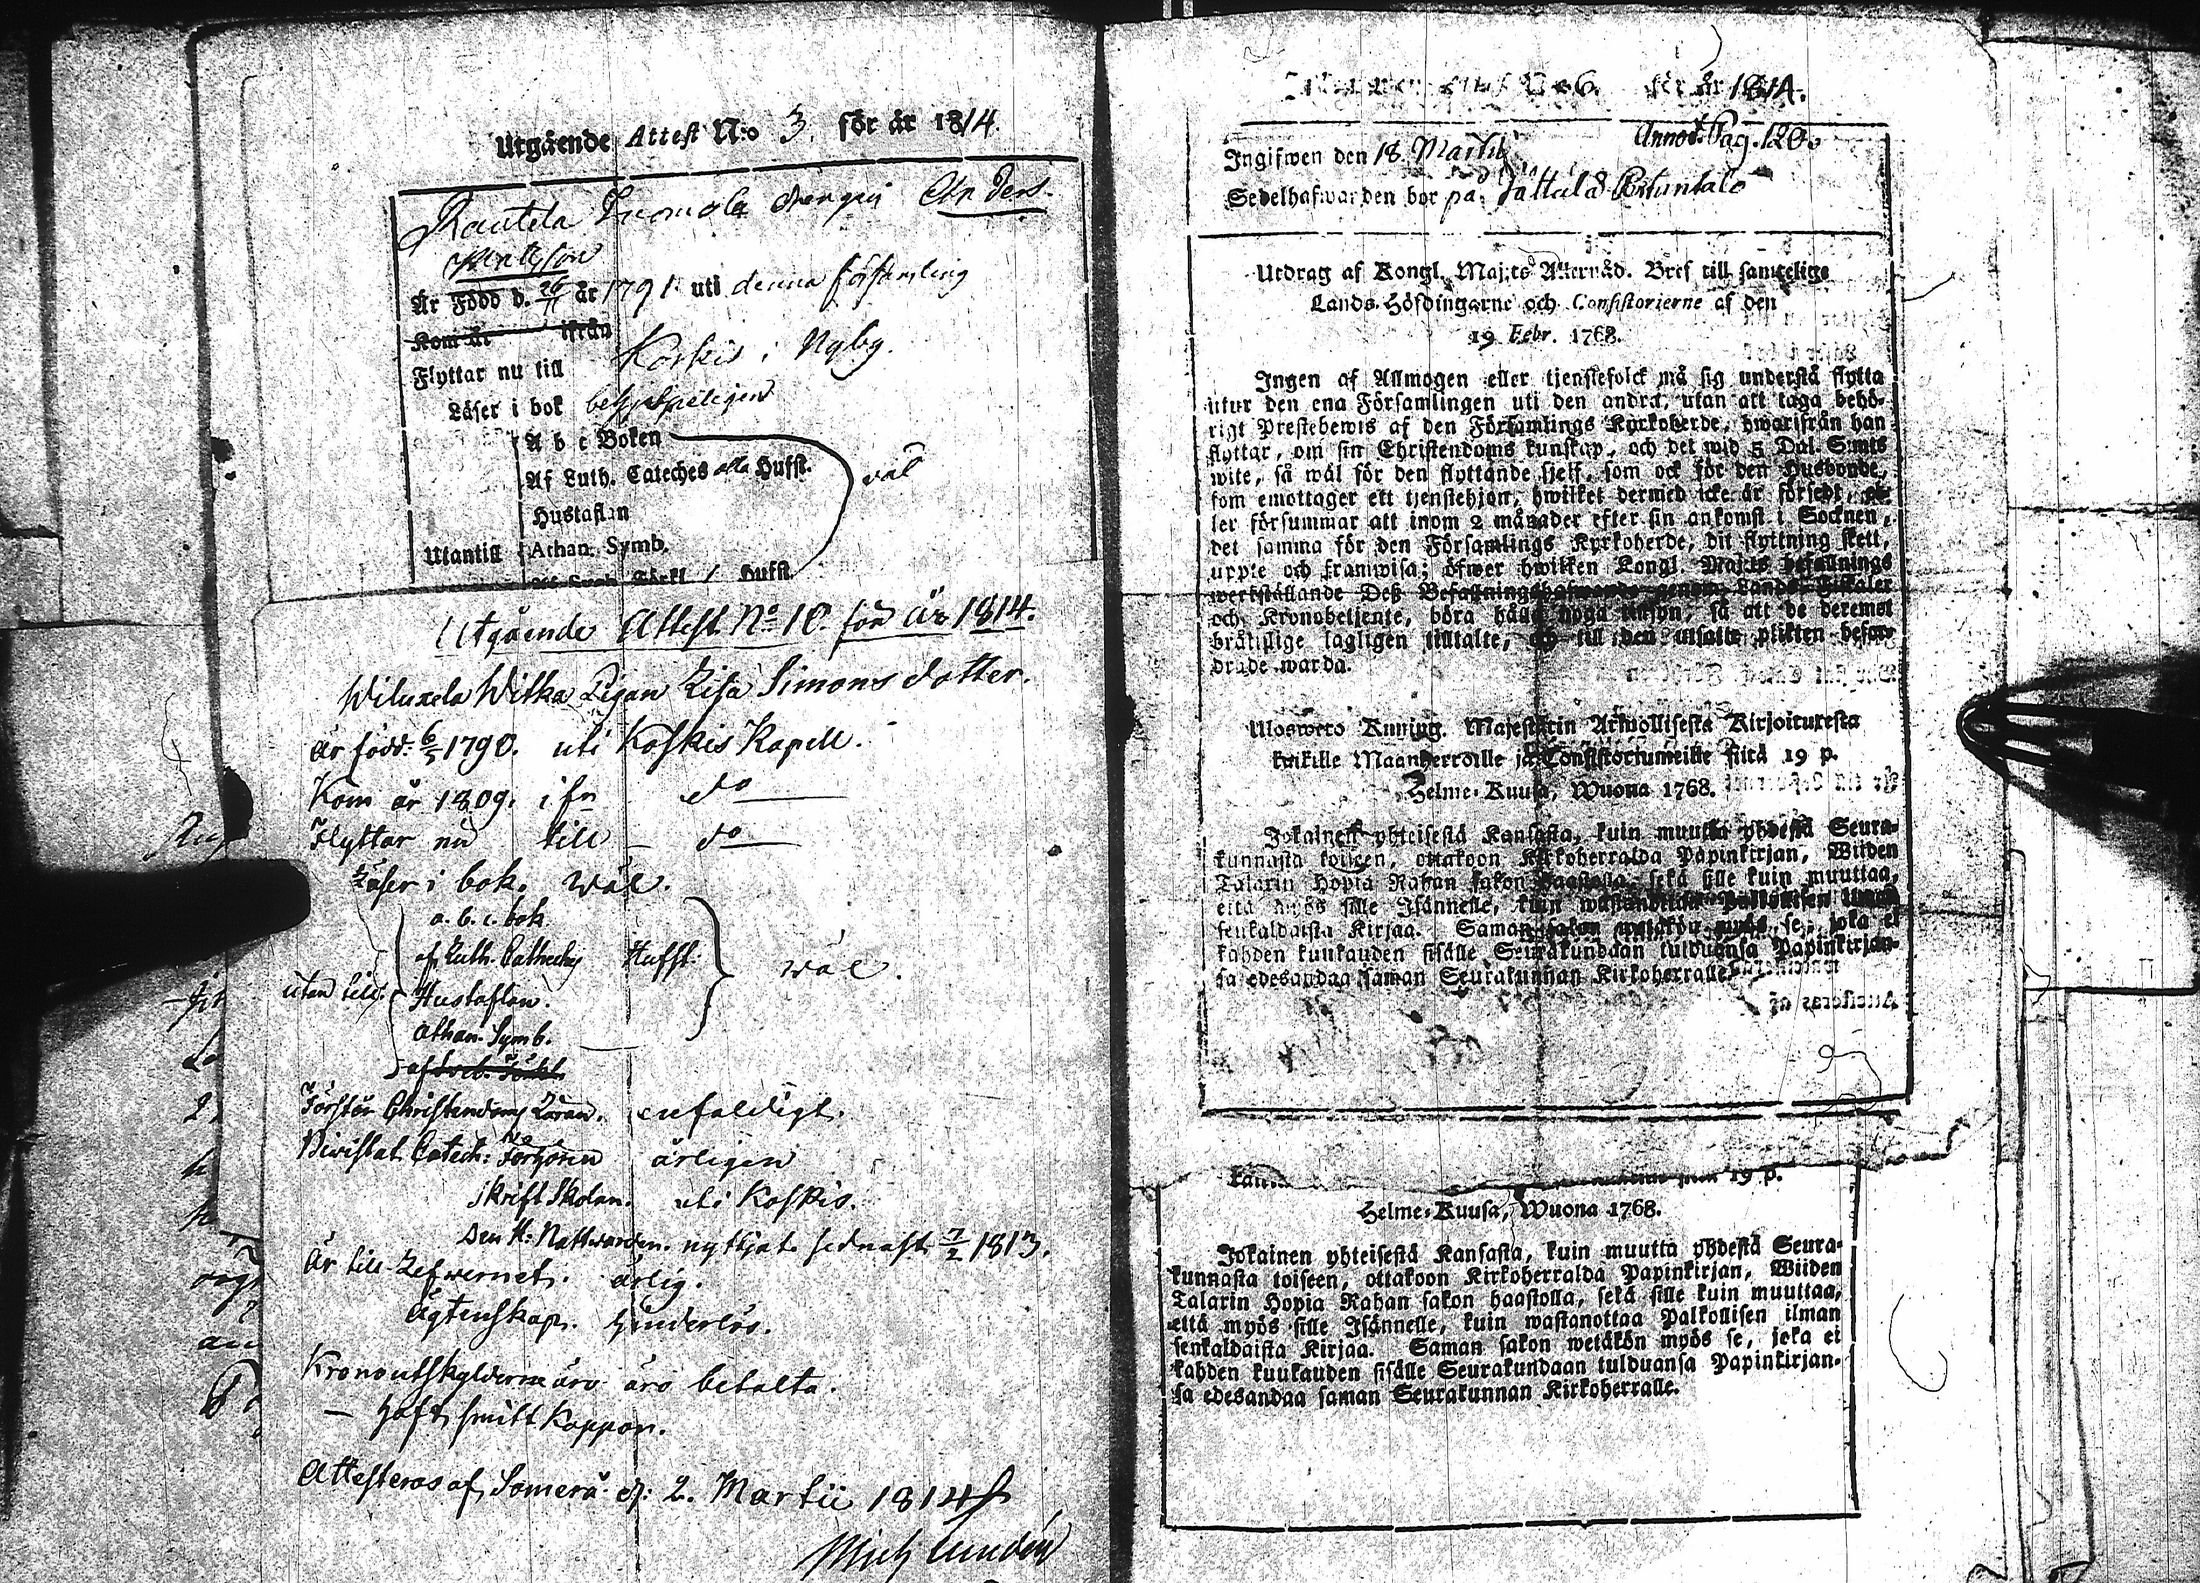 Utgående Attest N:o 3 för år 1814.
Rautela Tuomola drengen Anders
Är Född d. 26/11 år 1791 uti denna församling
Kom år ifrån
Flyttar nu till Koskis i Nyby.
Läser i bok
A b c Boken
Af Luth. Cateches alla Hufst. väl
Hustaflan
Utantill Athan. Symb.
Hufst.
Utgående Attest No 10. för år 1814.
Witka Pigan Lisa Simons dotter.
är född: 6/5 1790. uti Koskis Kapell.
Kom år 1809. ifn do
Flyttar nu till do
Läser i bok. wäl.
a. b. c. bok
af Luth. Cathech Hufst.
utan till: Hustaflan. wäl.
Athan. Symb.
af Sveb. Förkl.
Förstår Christendoms Läran. enfaldigt.
Biwistat Catech: Förhören årligen
Skrift Skolan. uti Koskis.
Den H: Nattwarden. nyttjat sednast 7/2 1813.
Är till Lefwernet. ärlig.
Ägtenskap. hinderlös.
Kronoutskylderna äro betalta.
haft smitt Koppor.
Attesteras af Somerå d: 2. Martii 1814
Mich Lundén
för år 1814.
Annot. Pag. 120.
Ingifwen den 18. Martii
Sedelhafwarden bor på
Utdrag af Kongl. Maj:ts Allernåd. Bref till samtelige
Lands-Höfdingarne och Consistorierne af den
19 Febr. 1768.
Ingen af Allmogen eller tjenstefolck må sig understå flytta
utur den ena Församlingen uti den andra, utan att taga behö-
rigt Prestebewis af den Församlings Kyrkoherde, hwarifrån han
flyttar, om sin Christendoms kunskap, och det wid 5 Dal. S:mts
wite, så wäl för den flyttande sjelf, som ock för den Husbonde,
som emottager ett tjenstehjon, hwilket dermed icke är försedt, el-
ler försummar att inom 2 månader efter sin ankomst i Socknen,
det samma för den Församlings Kyrkoherde, dit flyttning skett,
uppte och framwisa; öfwer hwilken Kongl. Maj:ts befallnings
werkställande Dess Befallningshafwande genom Lands-Fiskaler
och Kronobetjente, böra hafwa noga tillsyn, så att de deremot
bråtslige lagligen tilltalte, och till den utsatte plikten befor-
drade warda.
Uloswecto Kuning. Majestetin Armollisesta Kirjoituxesta
kaikille Maanherroille ja Consistoriumeille siitä 19 p.
Helme-Kuusa, Wuona 1768.
Jokainen yhteisestä Kansasta, kuin muutta yhdestä Seura-
kunnasta toiseen, ottakoon Kirkoherralda Papinkirjan, Wiiden
Talarin Hopia Rahan sakon haastolla, sekä sille kuin muuttaa,
että myös sille Isännelle, kuin wastanottaa Palkollisen ilman
senkaldaista Kirjaa. Saman sakon wetäkön myös se, joka ei
kahden kuukauden sisälle Seurakundaan tulduansa Papinkirjan-
sa edesandaa saman Seurakunnan Kirkoherralle.
19 p.
Helme-Kuusa, Wuona 1768.
Jokainen yhteisestä Kansasta, kuin muutta yhdestä Seura-
kunnasta toiseen, ottakoon Kirkoherralda Papinkirjan, Wiiden
Talarin Hopia Rahan sakon haastolla, sekä sille kuin muuttaa,
että myös sille Isännelle, kuin wastanottaa Palkollisen ilman
senkaldaista Kirjaa. Saman sakon wetäkön myös se, joka ei
kahden kuukauden sisälle Seurakundaan tulduansa Papinkirjan-
sa edesandaa saman Seurakunnan Kirkoherralle.